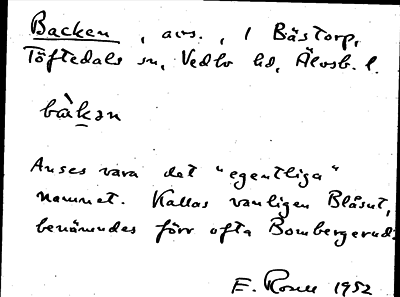 Backen, avs., i Bästorp,
Töftedals sn, Vedbo hd, Älvsb. l.
bàkən
Anses vara det "egentliga"
namnet. Kallas vanligen Blåsut,
benämndes förr ofta Bombergerud.
E. 1952